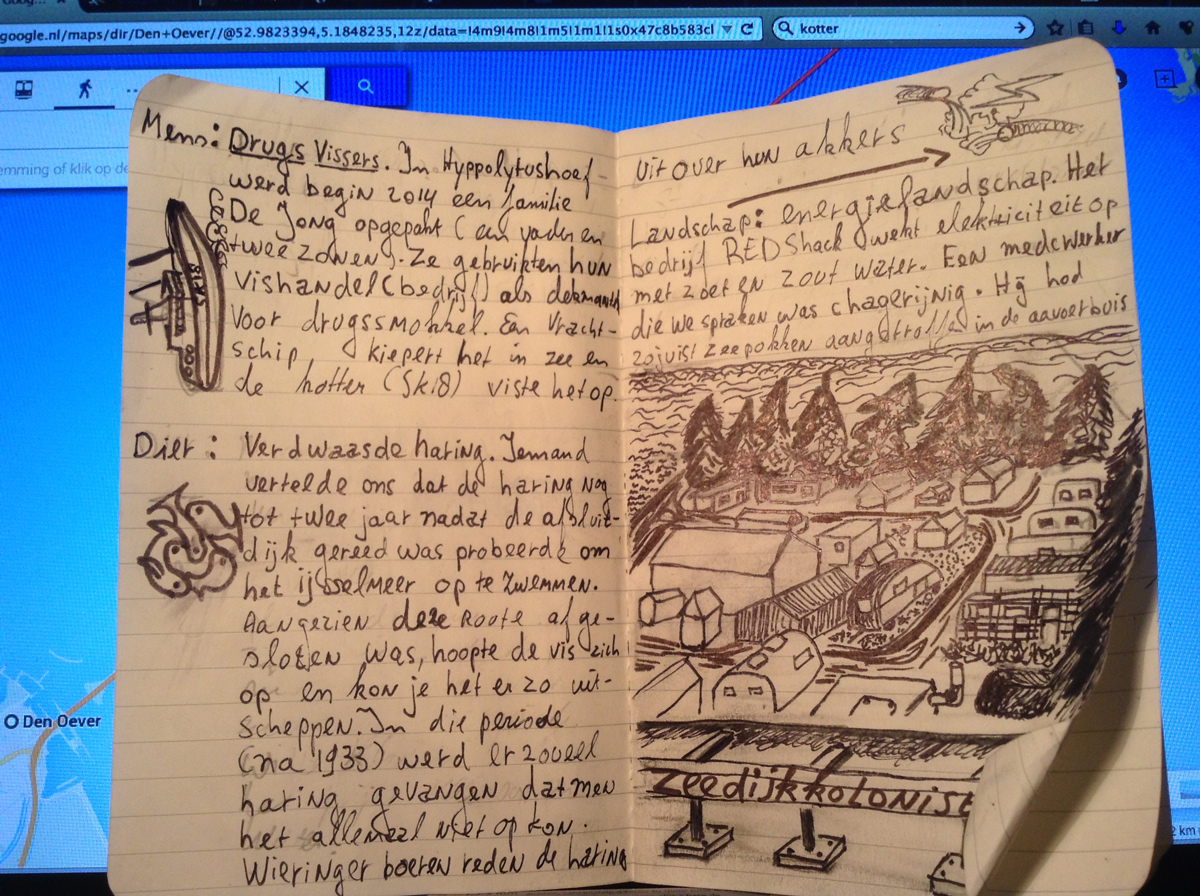 google.nl/maps/dir/Den+Oever//@52.9823394,5.1848235,12z/data=!4m9!4m8!1m5!1m1!1s0x47c8b583cl
kotter
emming of klik op de
Den Oever
2 km
Mens: Drugs Vissers. In Hyppolytushoef
werd begin 2014 een familie
De Jong opgepakt (een vader en
twee zonen). Ze gebruikten hun
vishandel (bedrijf) als dekmantel
voor drugssmokkel. Een Vracht-
schip, kiepert het in zee en
de kotter (SK18) viste het op.
SK18
Dier: Verdwaasde haring. Iemand
vertelde ons dat de haring nog
tot twee jaar nadat de afsluit-
dijk gereed was probeerde om
het ijsselmeer op te zwemmen.
Aangezien deze Route afge-
sloten was, hoopte de vis zich
op en kon je het er zo uit-
scheppen. In die periode
(na 1933) werd er zoveel
haring gevangen dat men
het allemaal niet op kon.
Wieringer boeren reden de haring
uit over hun akkers
Landschap: energielandschap. Het
bedrijf REDShack wekt elektriciteit op
met zoet en zout water. Een medewerker
die we spraken was chagerijnig. Hij had
zojuist zeepokken aangetroffen in de aavoerbuis
Zeedijkkolonist